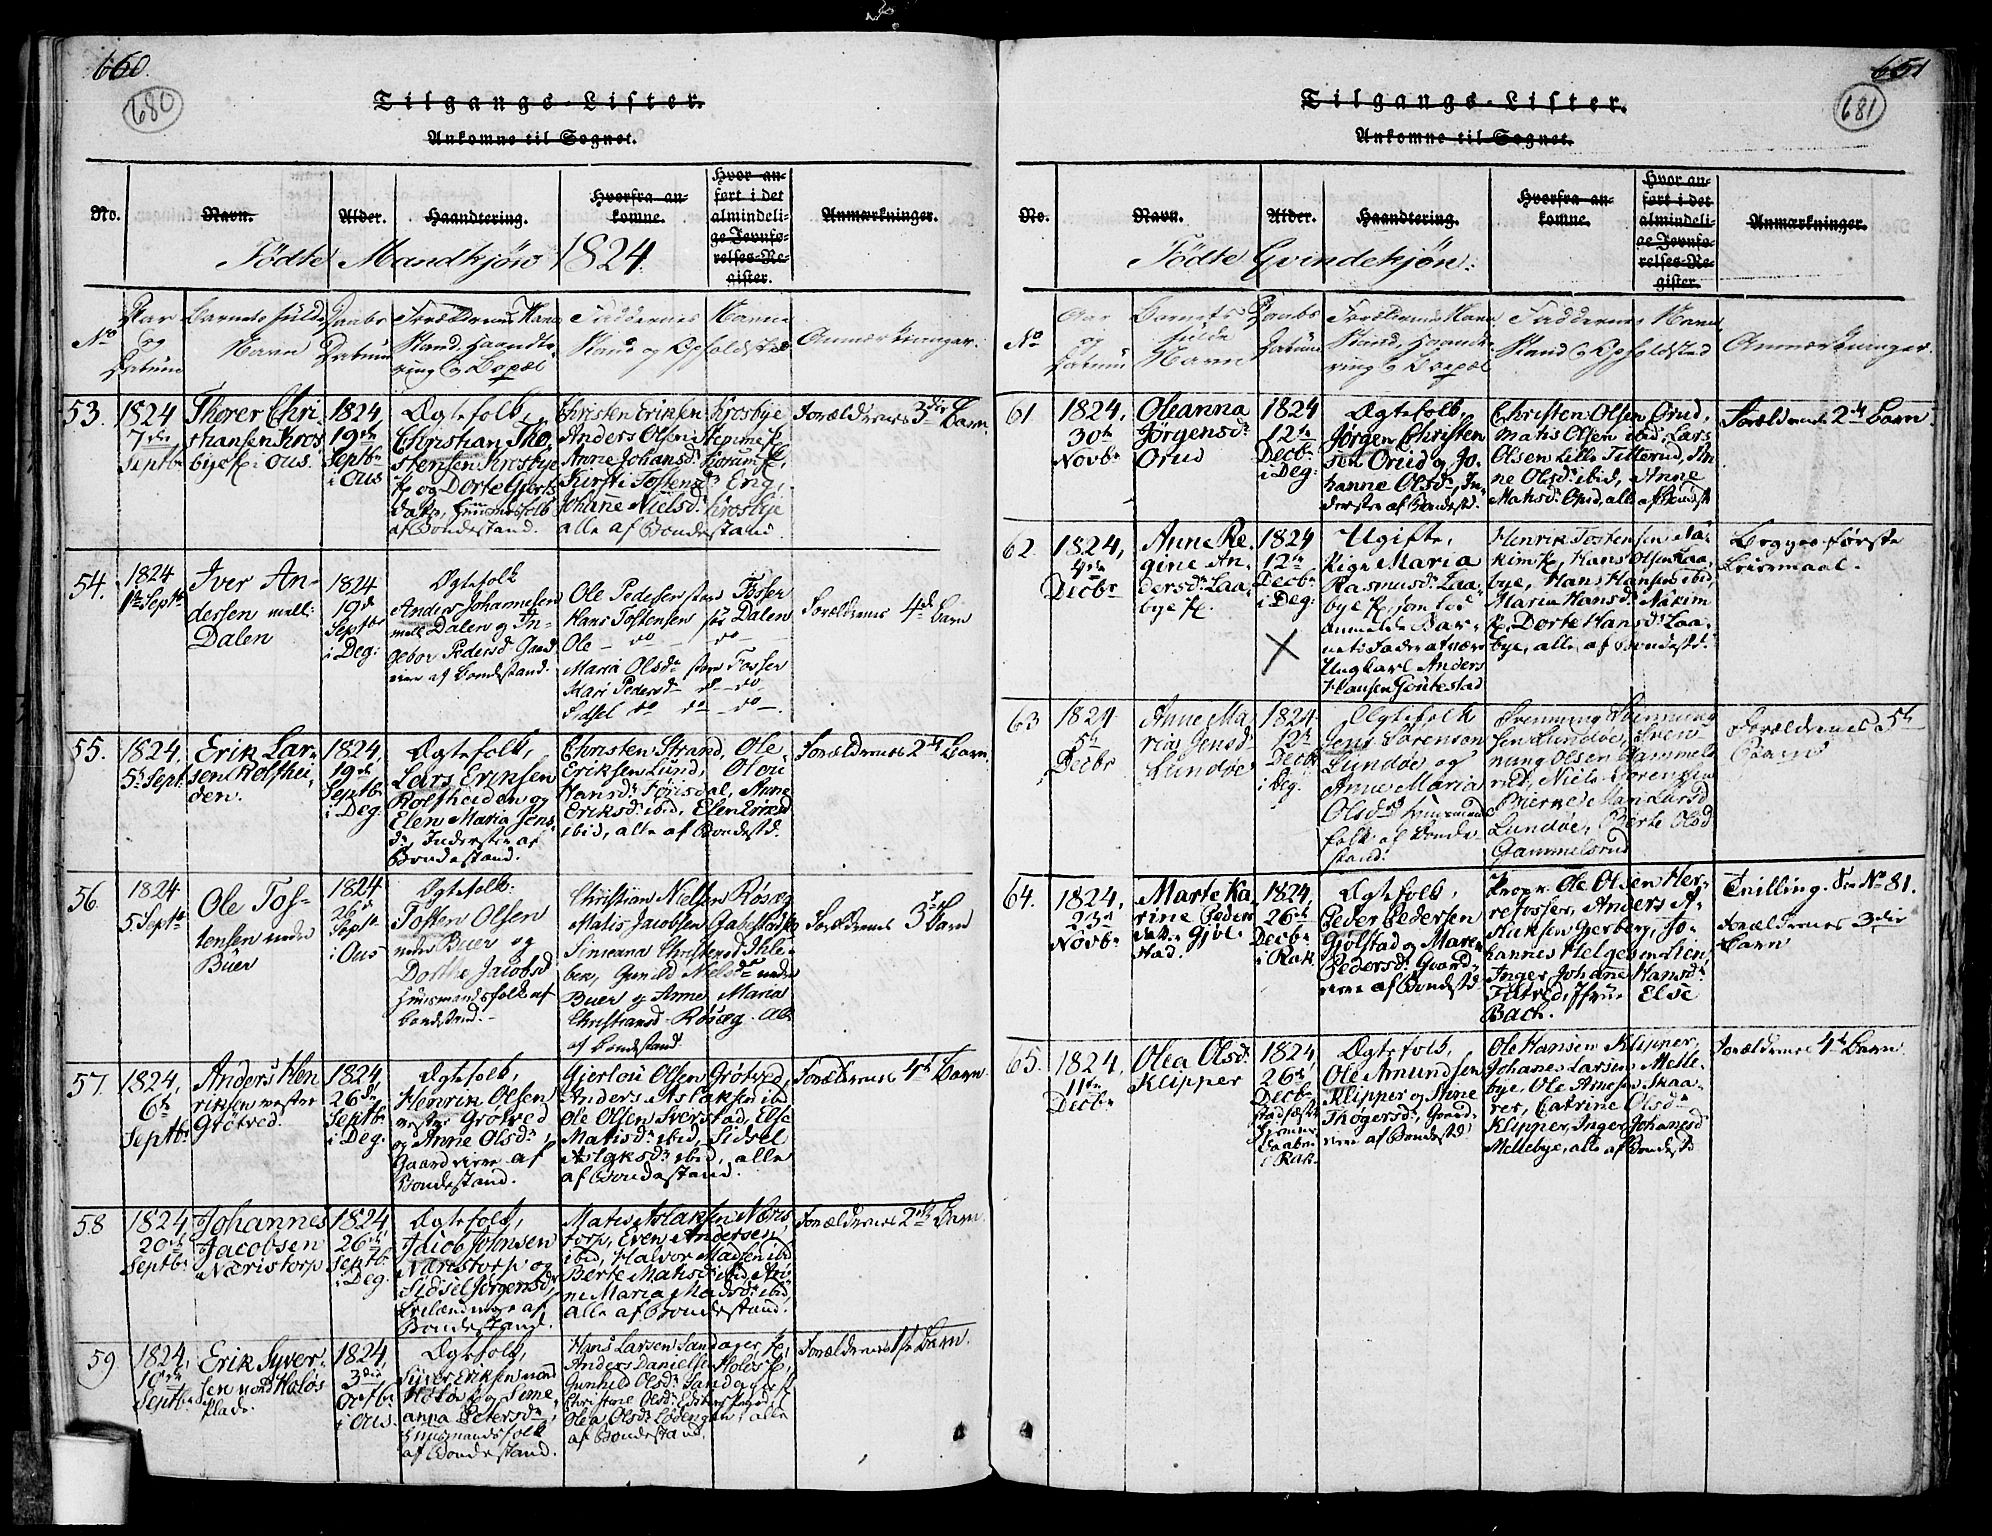 660.
680
Tilgangs-Lister.
Ankomne til Sognet.
No.
Navn.
Alder.
Haandtering.
Hvorfra an-
komne.
Hvor an-
ført i det
almindeli-
ge Jevnfø-
relses-Re-
gister.
Anmærkninger.
Fødte Mandkjøn 1824.
No
Aar
og
Datum
Barnets fulde
Navn
Daabs
Datum
Forældrenes Navn
Stand, Haandte-
ring og Bopæl
Faddernes Navne
Stand og Opholdsted
Anmærkninger.
53.
1824
7de
Septbr
Thorer Chri-
stiansen Kros
bye i Ous.
1824,
19de
Septbr
i Ous
Ægtefolk,
Christian Tho-
stensen Krosbye
og Dorte
Huusmandsfolk
af Bondestand.
Christen Eriksen Krosbye
Anders Olsen Stemme
Anne Johansdr
Kirsti Tostensdr Erig,
Johanne Nielsdr Krosbye
alle af Bondestand
Forældrenes 3die Barn.
54.
1824
1te Septbr
Iver An-
dersen mell:
Dalen
1824
19de
Septbr
i Deg:
Ægtefolk
Anders Johannesen
mell Dalen og In-
gebor Pedersdr Gaard
af Bondestand.
Ole Pedersen store Fosser
Hans Tostensen Dalen
Ole – do do –
Maria Olsdr store Fosser
Kari Pedersdr do – do
Sidsel do do – do –
Forældrenes 4de Barn
55.
1824,
5te Septbr
Erik Lar-
sen Rolfshei-
den.
1824,
19de
Septbr
i Deg:
Ægtefolk,
Lars Eriksen
Rolfsheiden og
Elen Maria Jens
dr, Inderster af
Bondestand.
Christen Strand, Ole
Eriksen Lund, Olou
Hansdr Anne
Eriksdr ibid, Elen
ibid, alle af Bondestd.
Forældrenes 2det Barn.
56
1824
5 Septbr
Ole Tos-
tensen nedre
Buer
1824
26de
Septbr
i Ous
Ægtefolk:
Tosten Olsen
nedre Buer og
Dorthe Jacobsd
Huusmandsfolk af
Bondestnd.-
Christian Nielsen Røsæg
Matis Jacobsen Gabestad
Simeana Christensd
Gunild Nielsdr nedre
Buer og Anne Maria
Christiansd Røsæg. Alle
af Bondestand
Forældrenes 3die Barn
57.
1824,
6te
Septbr
Anders Hen
riksen vestre
Grøtved.
1824,
26de
Septbr
i Deg:
Ægtefolk,
Henrik Olsen
vestre Grøtved
og Anne Olsdr,
Gaard af
Bondestand.
Gjerlou Olsen Grøtved,
Anders Aslaksen ibd
Ole Olsen Sverstad, Else
Matisdr ibid, Sidsel
Aslaksdr ibid, alle
af Bondestand.
Forældrenes 4de Barn
58
1824,
20de
Septbr
Johannes
Jacobsen
Næristorp
1824,
26de
Septbr
i Deg.
Ægtefolk,
Jacob Johnsen
Næristorp og
Sidsel Jørgensdr,
af
Bondestand.
Matis Aslaksen Næris
torp, Even Andersen
ibid, Halvor Madsen ibd
Berte Matisdr ibid, An-
ne Maria Madsdr ibid,
alle af Bondestand.
Forældrenes 2det Barn.
59
1824,
10de
Septbr
Erik Syver-
sen nord Holøs
plads.
1824,
3die
Octbr
i Ous.
Ægtefolk,
Syver Eriksen nord
Holøs og Sime-
anna Petersdr,
Huusmandsfolk
af Bondestand.
Hans Larsen Sandager
Anders Danielsen Holøs
Gunhild Olsdr Sandager
Christine Olsdr
Olea Olsdr Lødengen, alle
af Bondestand.
Forældrenes 1te Barn.
651
681
Tilgangs-Lister.
Ankomne til Sognet.
No.
Navn.
Alder.
Haandtering.
Hvorfra an-
komne.
Hvor an-
ført i det
almindeli-
ge Jevnfø-
relses-Re-
gister.
Anmærkninger.
Fødte Qvindekjøn:
No
Aar
og
Datum
Barnets
fulde
Navn
Daabs
Datum
Forældrenes Navn
Stand, Haandte-
ring og Bopæl
Faddernes Navn
Stand og Opholdsted
Anmærkninger.
61
1824,
30te
Novbr
Oleanna
Jørgensdr
Orud
1824
12te
Decbr
i Deg:
Ægtefolk,
Jørgen Christen
sen Orud og Jo-
hanne Olsdr, In-
derster af Bondestd.
Christen Olsen Orud,
Matis Olsen ibid, Lars
Olsen Lille Titterud, An-
ne Olsdr ibid, Anne
Matisdr ibid, alle af Bondest
Forældrenes 2det Barn.
62.
1824,
4de
Decbr
Anne Re-
gine An-
dersdr Laa-
bye
1824
12te
Decbr
i Deg:
Ugifte,
Pige Maria
Rasmusdr Laa-
bye som lod
anmelde Bar-
nets Fader at være
Ungkarl Anders
Hansen
Henrik Tostensen Na-
kim, Hans Olsen Laa-
bye, Hans Hansen ibid,
Maria Hansdr Nakim
Dorte Hansdr Laa-
bye, alle af Bondestd.
Begges første
Leiermaal.
63
1824.
5te
Decbr
Anne Ma-
ria Jensdr
Lundøe
1824.
12te
Decbr
i Deg:
Ægtefolk
Jens Sørensen
Lundøe og
Anne Maria
Olsdr Huusmands
folk af Bonde-
stand.
Svennung
sen Lundøe, Sven
nung Olsen Gammels
rud, Niels Sørensen
Bierke, Mari Larsd
Lundøe, Berte Olsd
Gammelsrud
Forældrenes 5te
Barn
64.
1824,
23de
Novbr
Marte Ka-
rine Peders
datter Gjøl-
stad.
1824,
26de
Decbr
i Rak.
Ægtefolk,
Peder Pedersen
Gjølstad og Maren
Pedersdr Gaard-
af Bondestd
Propr. Ole Olsen Her-
refosser, Anders A-
slaksen Gjerberg, Jo-
hannes Helgesen Lien,
Inger Johane Hansdr
Titved, Jfru Else
Bach.
Tvilling. See No 81.
Forældrenes 3die
Barn
65.
1824,
11te
Decbr
Olea Olsdr
Klipper
1824,
26de
Decbr
stadfæstet
Hjemme-
daaben
i Rak.
Ægtefolk,
Ole Amundsen
Klipper og Mine
Thøgersdr, Gaard-
af Bondestd
Ole Hansen Klipper,
Johanes Larsen Melle-
bye, Ole Arnesen Skaa-
rer, Catrine Olsdr
Klipper, Inger Johanesd
Mellebye, alle af Bondestd
Forældrenes 4de Barn